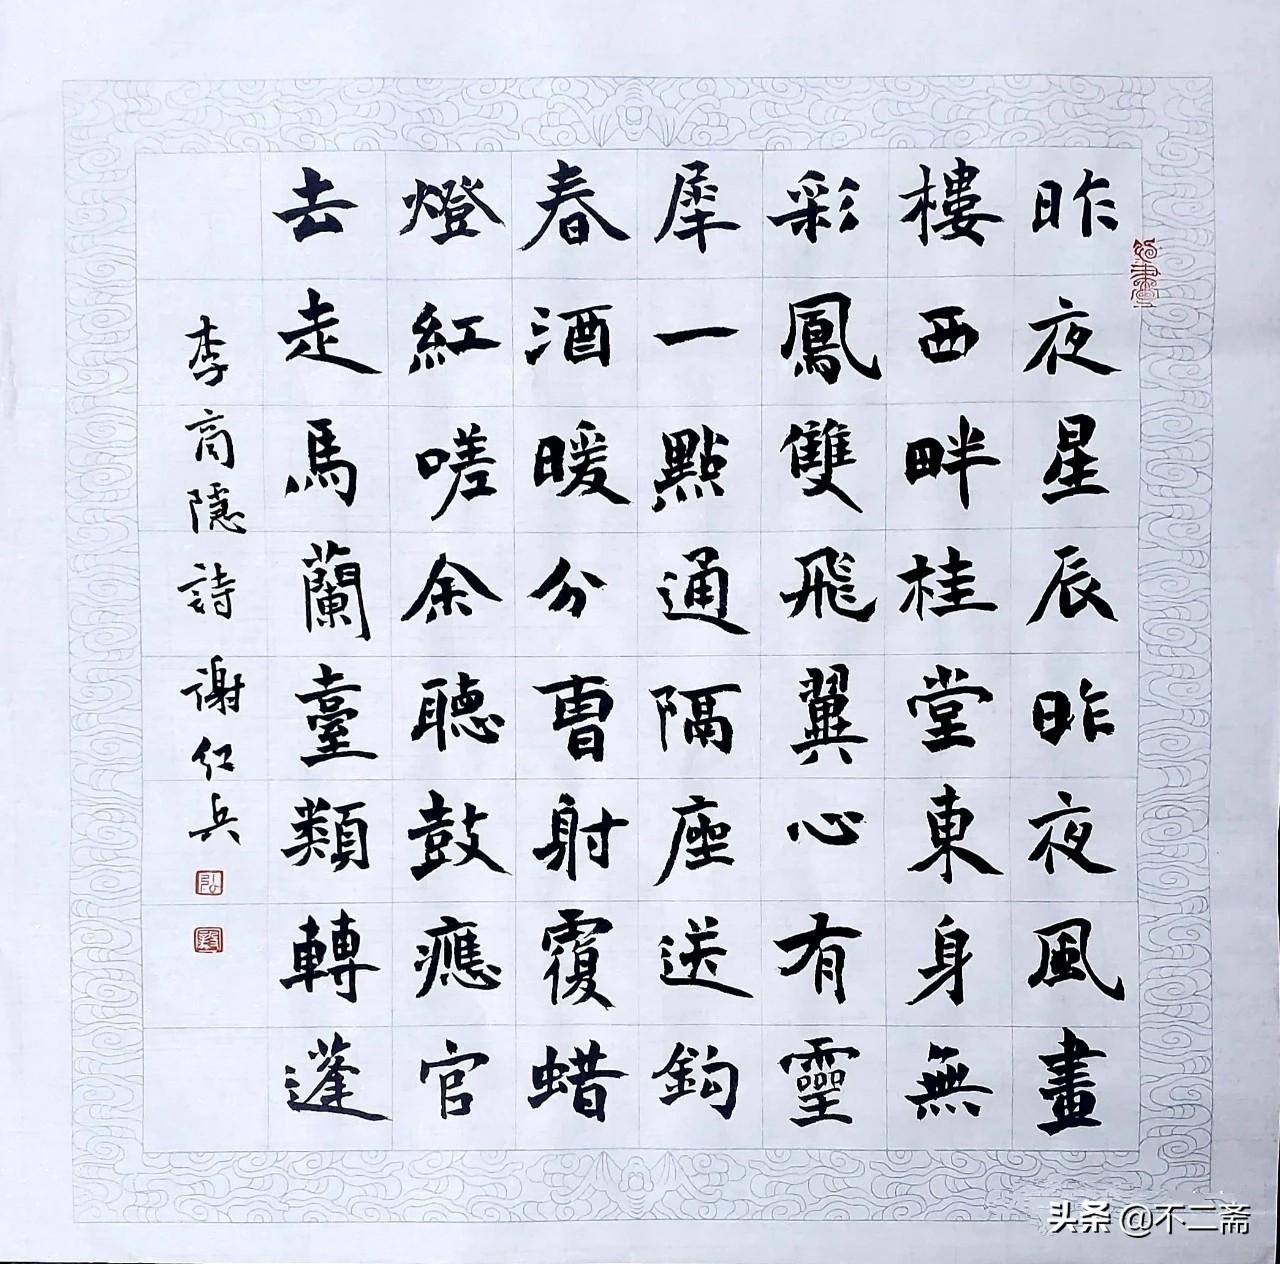 昨夜星辰昨夜風畫
樓西畔桂堂東身無
彩鳳雙飛翼心有靈
犀一點通隔座送鈎
春酒暖分曹射覆蜡
燈紅嗟余聽鼓應官
去走馬蘭臺類轉蓬
李商隱詩 謝仁兵
头条 @不二斋